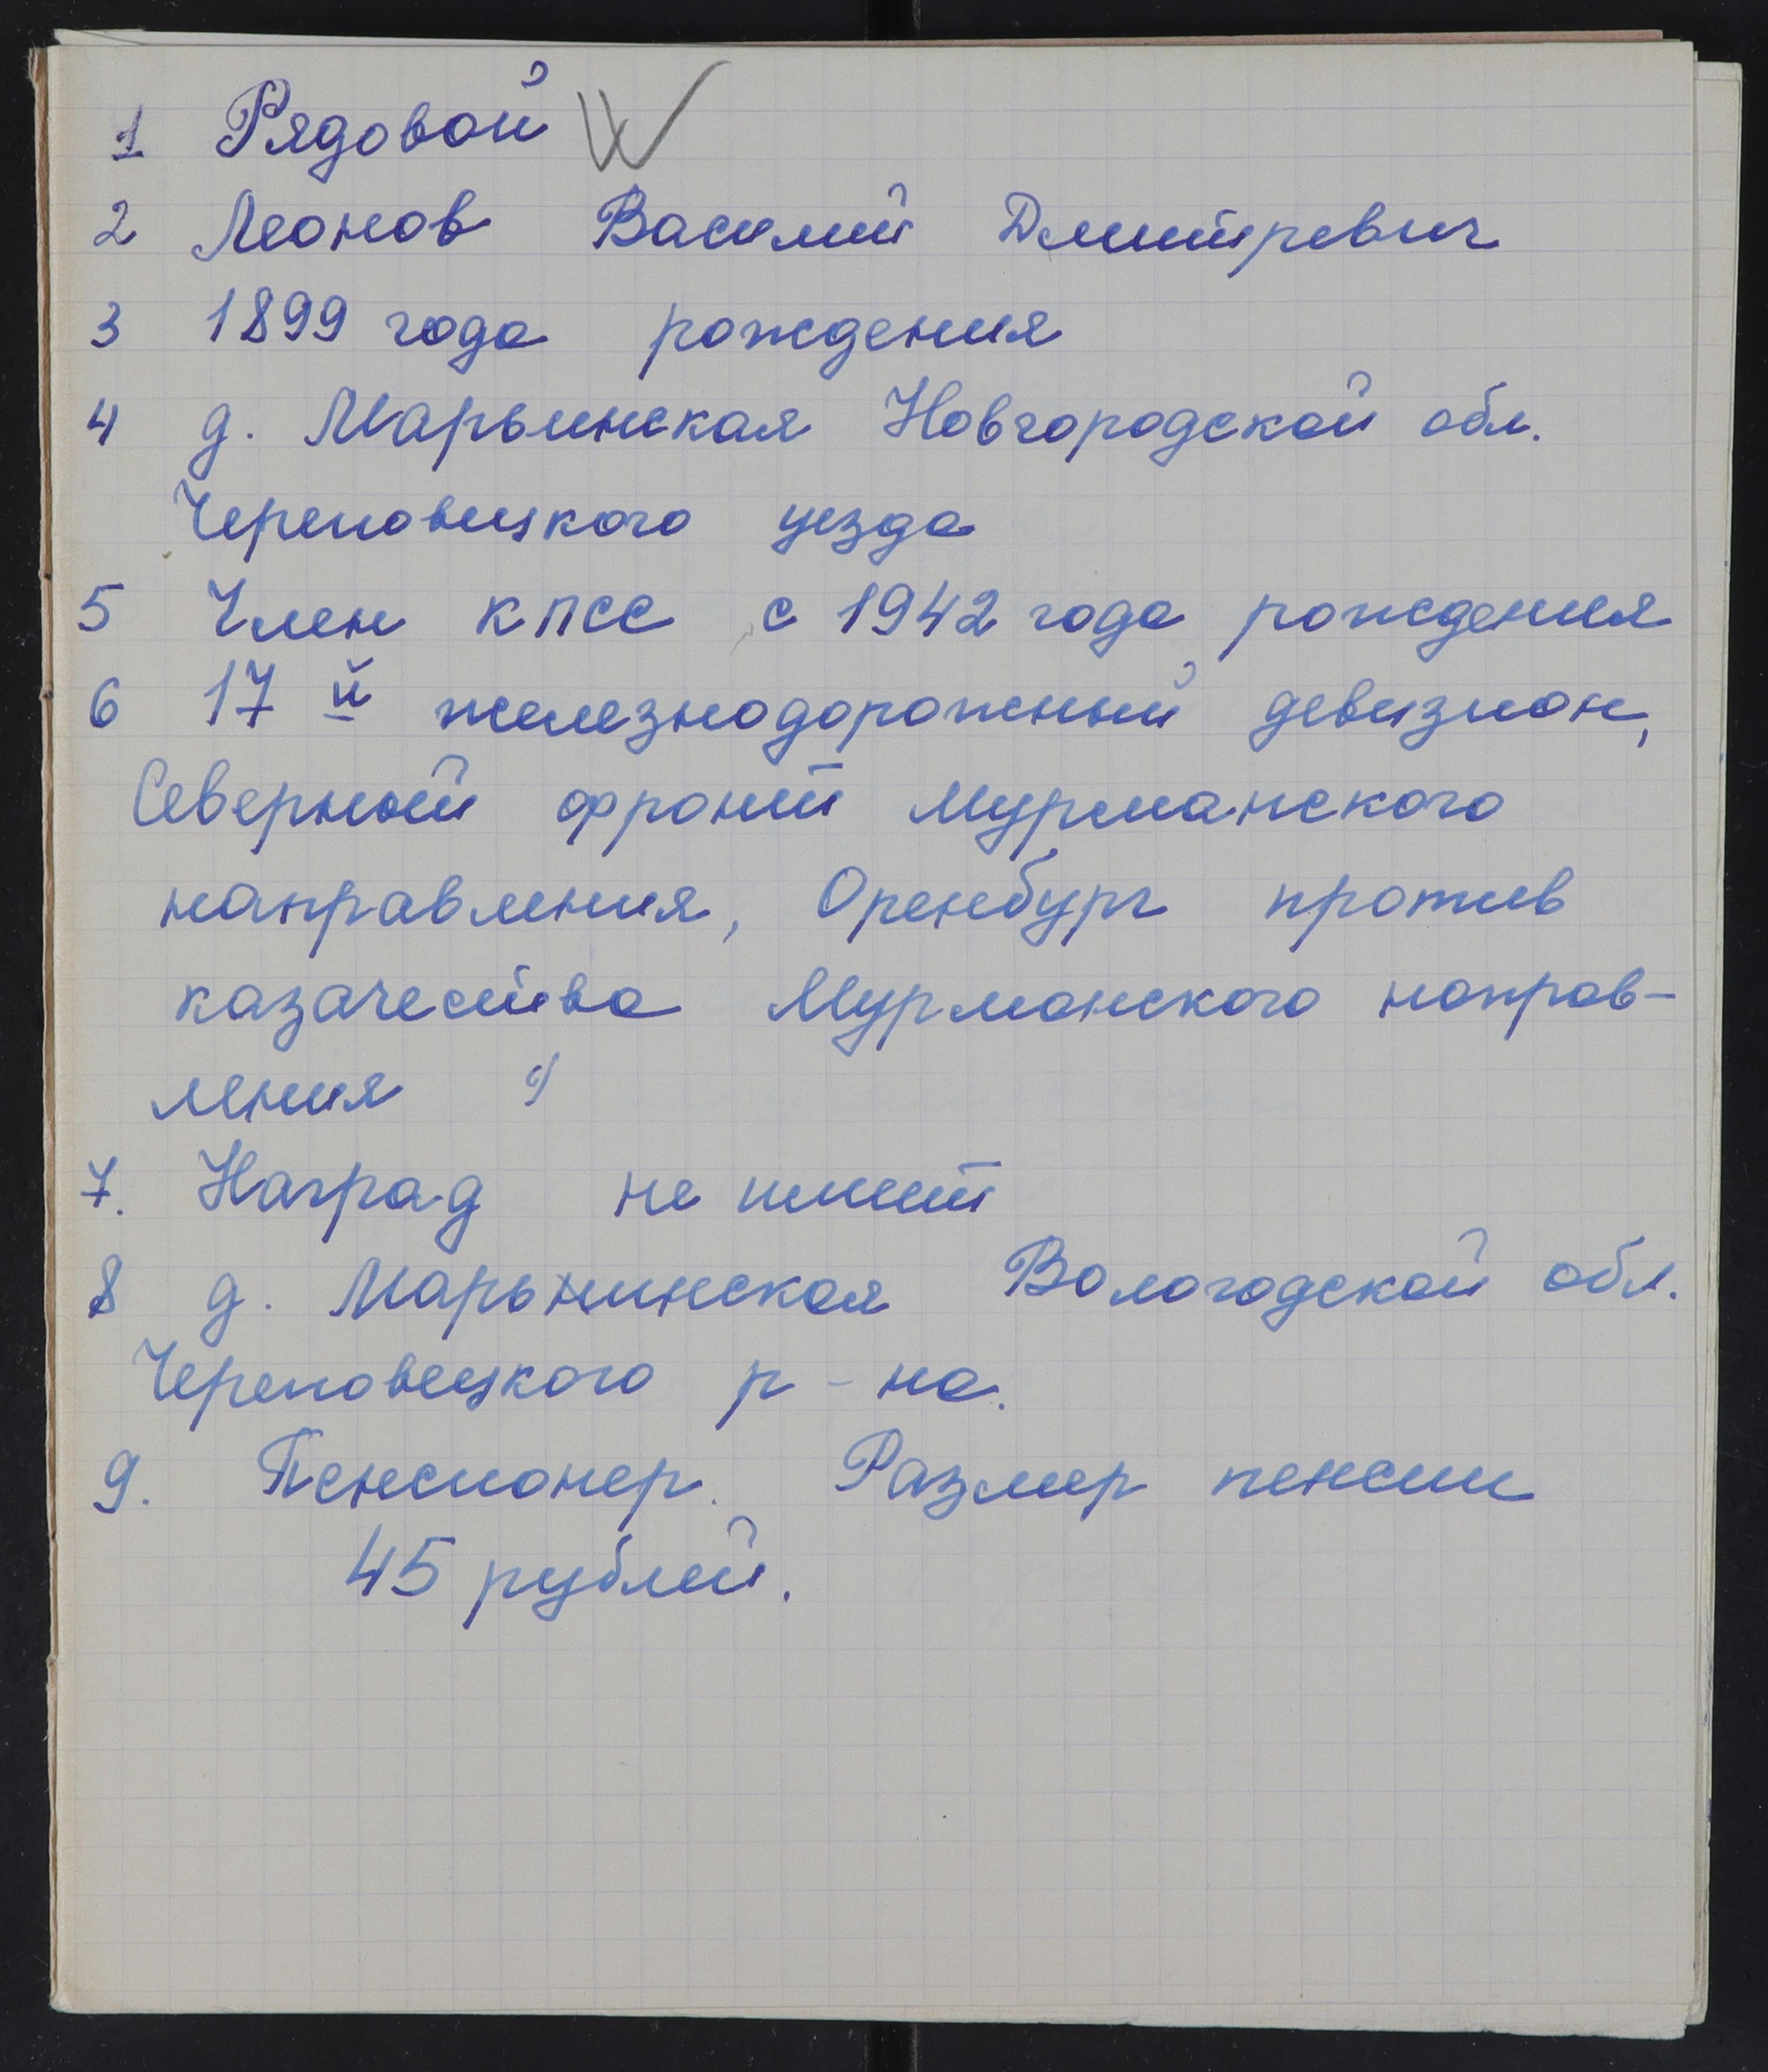 1 Рядовой
2 Леонов Василий Дмитревич
3 1899 года рождения
4 д. Марьинская Новгородской обл.
Череповецкого уезда
5 Член КПСС с 1942 года рождения
6 17 й железнодорожный девизион,
Северный фронт Мурманского
направления, Оренбург против
казачества Мурманского направ-
ления
7. Наград не имеет
8 д. Марьнинская Вологодской обл.
Череповецкого р-на.
9. Пенсионер. Размер пенсии
45 рублей.